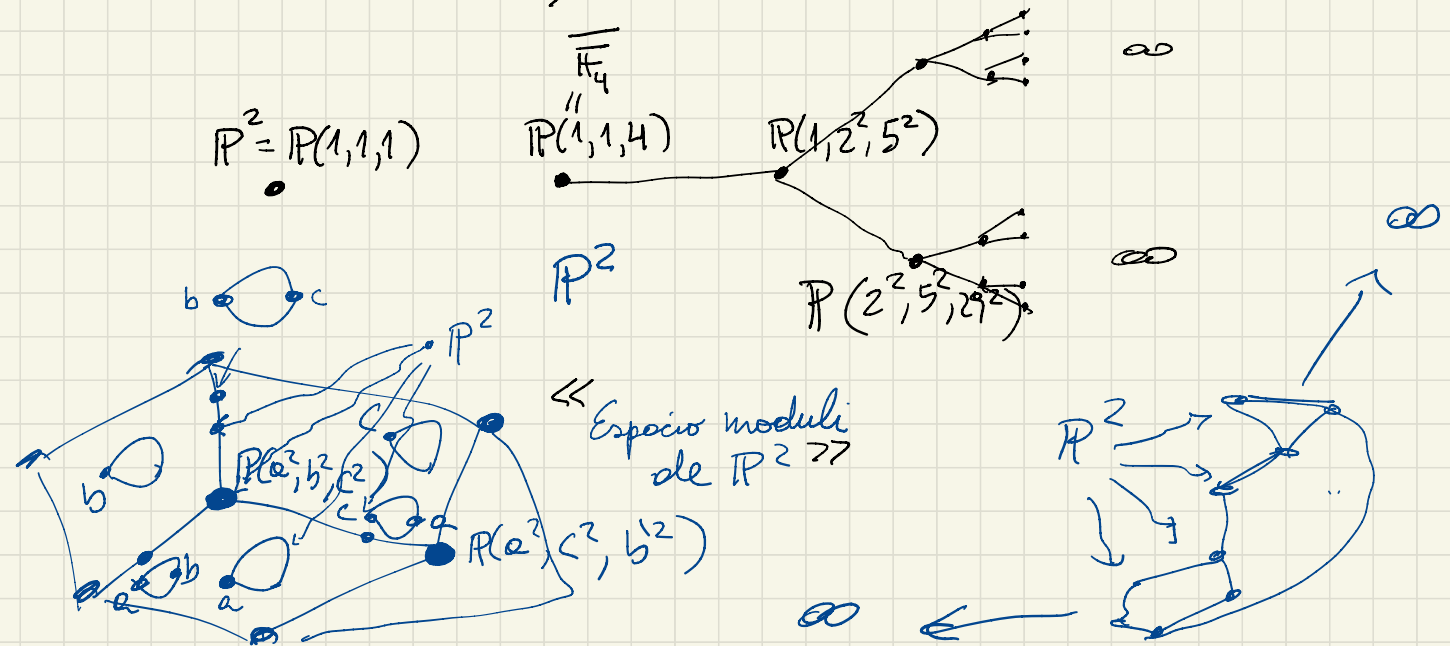 F̅₄
||
ℙ² = ℙ(1,1,1)
ℙ(1,1,4)
ℙ(1,2²,5²)
∞
ℙ(2²,5²,29²)
∞
ℙ²
b c
ℙ²
<<Espacio moduli
de ℙ²>>
b
ℙ(a²,b²,c²)
c
c a
ℙ(a²,c²,b'²)
a b
a
ℙ²
∞
∞